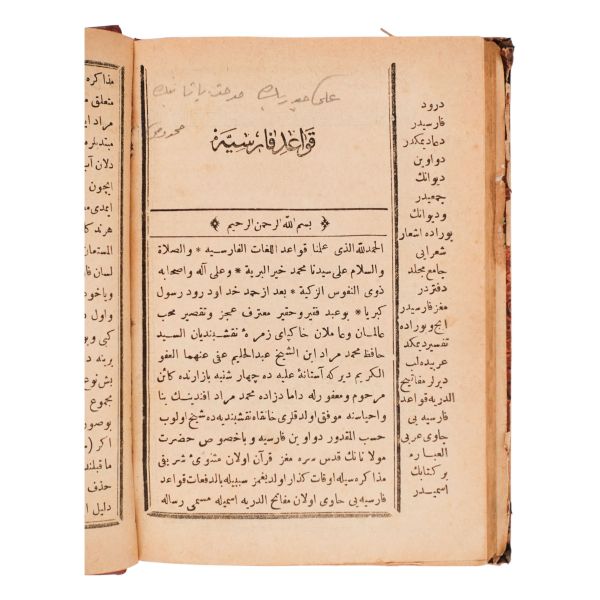 قواعد فارسیه
بسم الله الرحمن الرحیم
الحمدلله الذی علمنا قواعد اللغات الفارسیه * والصلاة
والسلام علی سیدنا محمد خیر البریة * وعلی آله واصحابه
ذوی النفوس الزکیة * بعد از حمد خدا ودرود رسول
کبریا * بو عبد فقیر وحقیر معترف عجز وتقصیر محب
عالمان وعاملان خاکپای زمرهٔ نقشبندیان السید
حافظ محمد مراد ابن الشیخ عبدالحلیم عفی عنهما العفو
الکریم دیرکه آستانهٔ علیه ده چهار شنبه بازارنده کائن
مرحوم ومغفورله داماد زاده محمد مراد افندینك بنا
واحیاسنه موفق اولدقلری خانقاه نقشبندیه ده شیخ اولوب
حسب المقدور دواوین فارسیه وباخصوص حضرت
مولانانك قدس سره مغز قرآن اولان مثنوئ شریفی
مذاکره سیله اوقات کذار اولدیغمز سببیله بالدفعات قواعد
فارسیه یی حاوی اولان مفاتیح الدریه اسمیله مسمی رساله
درود
فارسیدر
دعا دیمکدر
دواوین
دیوانك
جمعیدر
ودیوانك
بوراده اشعار
شعرایی
جامع مجلد
دفتردر
مغز فارسیدر
ایچ وبوراده
تفسیر دیمکدر
عربیده لب
دیرلر مفاتیح
الدریه قواعد
فارسیه یی
حاوی عربی
العباره
بر کتابك
اسمیدر
مذاکره
متعلق
مراد
مبتدیلره
دلان
ایچون
ایمدی
هرنه
المستعان
لسان فار
وباخصو
واول
کی وبو
یرینه
بش نوع
مجموع
بوصور
اکر
ماقبلند
حذف
دلیل